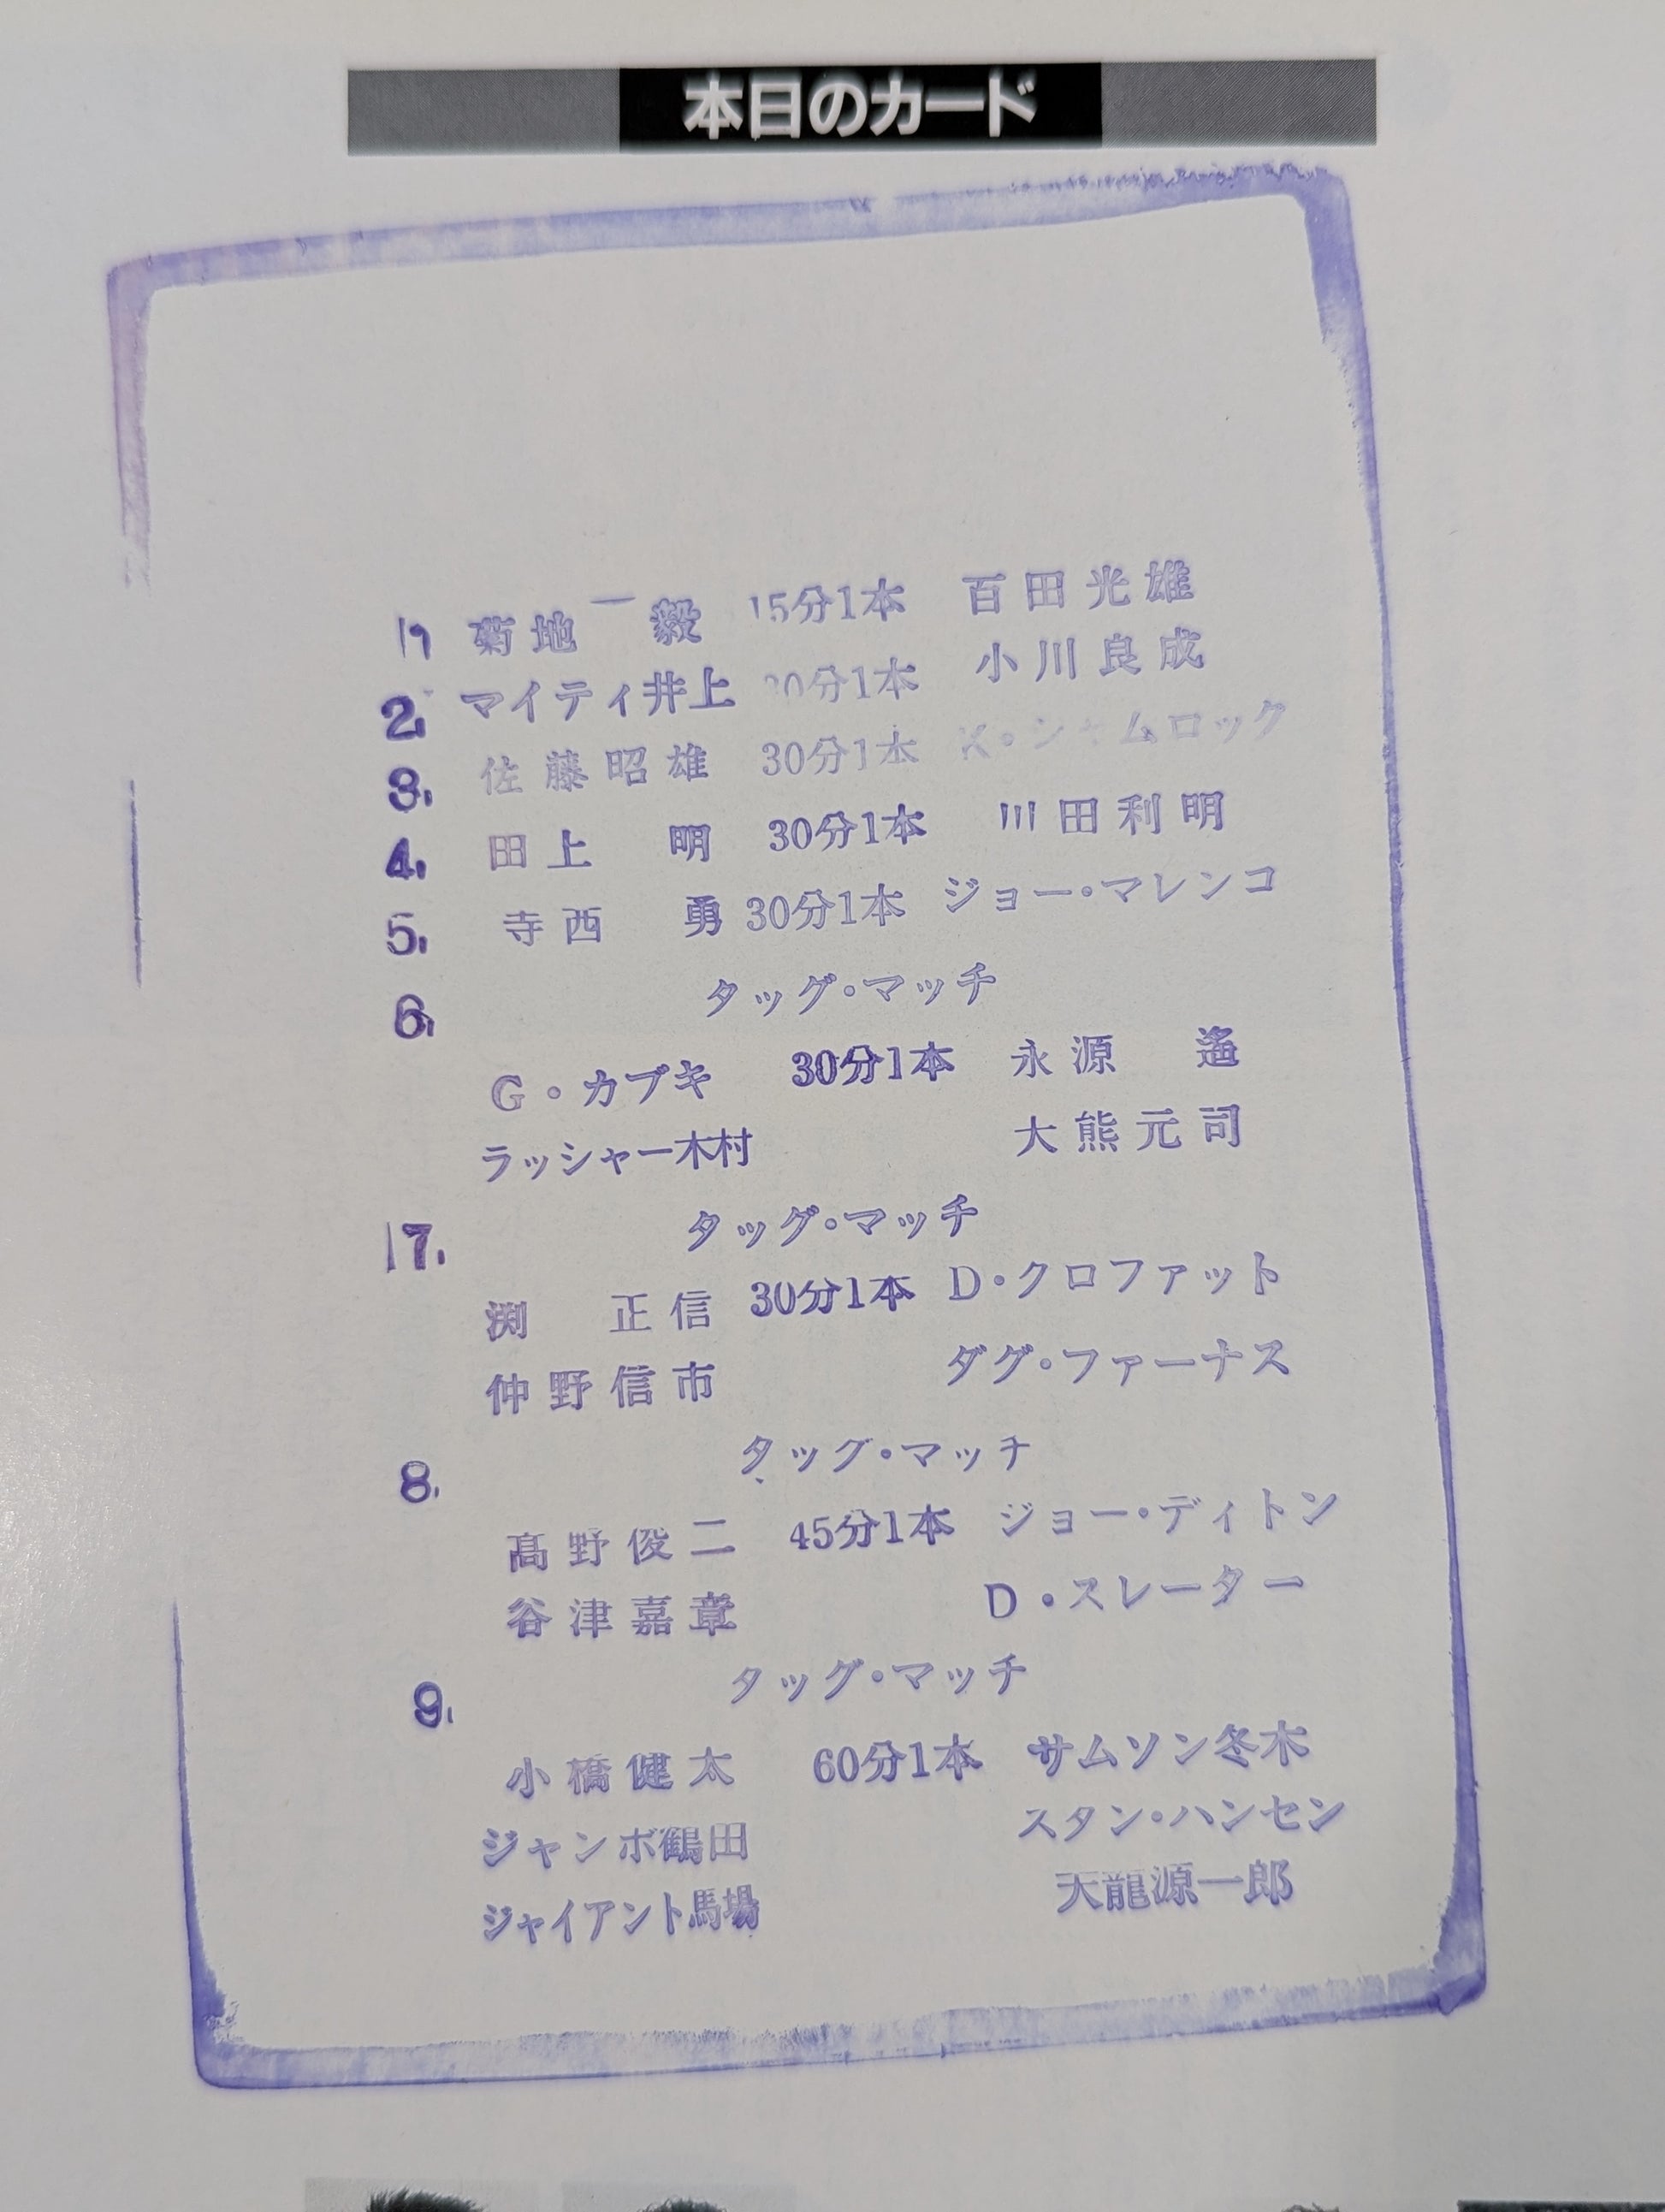 本日のカード
1 菊地 毅 15分1本 百田光雄
2. マイティ井上 30分1本 小川良成
3. 佐藤昭雄 30分1本 K・シャムロック
4. 田上 明 30分1本 川田利明
5. 寺西 勇 30分1本 ジョー・マレンコ
6. タッグ・マッチ
G・カブキ 30分1本 永源 遙
ラッシャー木村 大熊元司
7. タッグ・マッチ
渕 正信 30分1本 D・クロファット
仲野信市 ダグ・ファーナス
8. タッグ・マッチ
髙野俊二 45分1本 ジョー・ディトン
谷津嘉章 D・スレーター
9. タッグ・マッチ
小橋健太 60分1本 サムソン冬木
ジャンボ鶴田 スタン・ハンセン
ジャイアント馬場 天龍源一郎